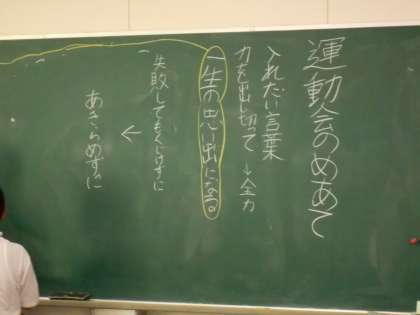 運動会のめあて
入れたい言葉
力を出し切って→全力
一生の思い出になる。
失敗してもくじけずに
↓
あきらめずに